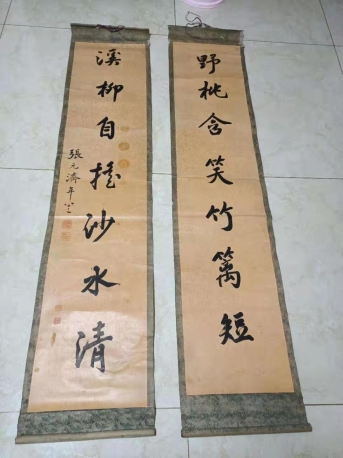 野桃含笑竹篱短
溪柳自摇沙水清
張元濟